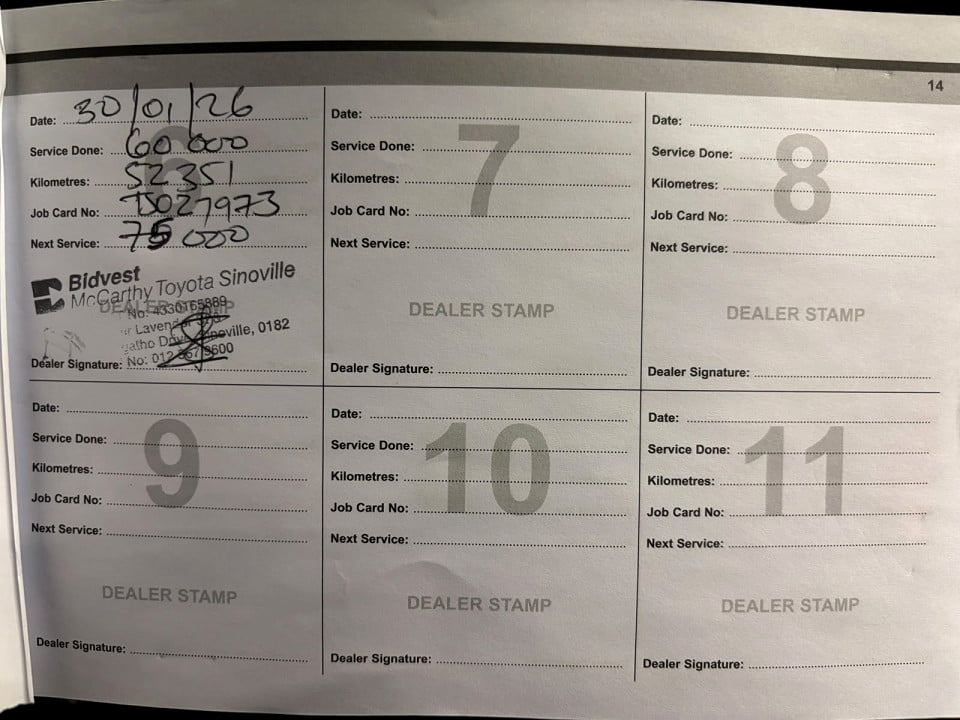 14
Date: 30/01/26
Service Done: 60 000
Kilometres: 52 351
Job Card No:
Next Service: 75 000
Bidvest
McCarthy Toyota Sinoville
DEALER STAMP
No: 4330165889
Lavender
Sinoville, 0182
No: 012 567 9600
Dealer Signature:
7
Date:
Service Done:
Kilometres:
Job Card No:
Next Service:
DEALER STAMP
Dealer Signature:
8
Date:
Service Done:
Kilometres:
Job Card No:
Next Service:
DEALER STAMP
Dealer Signature:
9
Date:
Service Done:
Kilometres:
Job Card No:
Next Service:
DEALER STAMP
Dealer Signature:
10
Date:
Service Done:
Kilometres:
Job Card No:
Next Service:
DEALER STAMP
Dealer Signature:
11
Date:
Service Done:
Kilometres:
Job Card No:
Next Service:
DEALER STAMP
Dealer Signature: